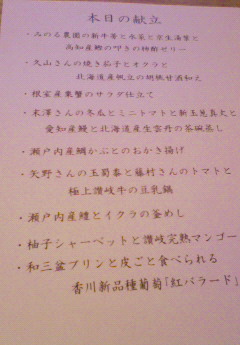 本日の献立
・みのる農園の新牛蒡と水菜と京生湯葉と
高知産鰹の叩きの柿酢ゼリー
・大山さんの焼き茄子とオクラと
北海道産帆立の胡桃甘酒和え
・根室産東蟹のサラダ仕立て
・米澤さんの冬瓜とミニトマトと新玉葱真丈と
愛知産鰻と北海道産生雲丹の茶碗蒸し
・瀬戸内産鯛かぶとのおかき揚げ
・矢野さんの玉蜀黍と藤村さんのトマトと
極上讃岐牛の豆乳鍋
・瀬戸内産鱧とイクラの釜めし
・柚子シャーベットと讃岐完熟マンゴー
・和三盆プリンと皮ごと食べられる
香川新品種葡萄「紅バラード」